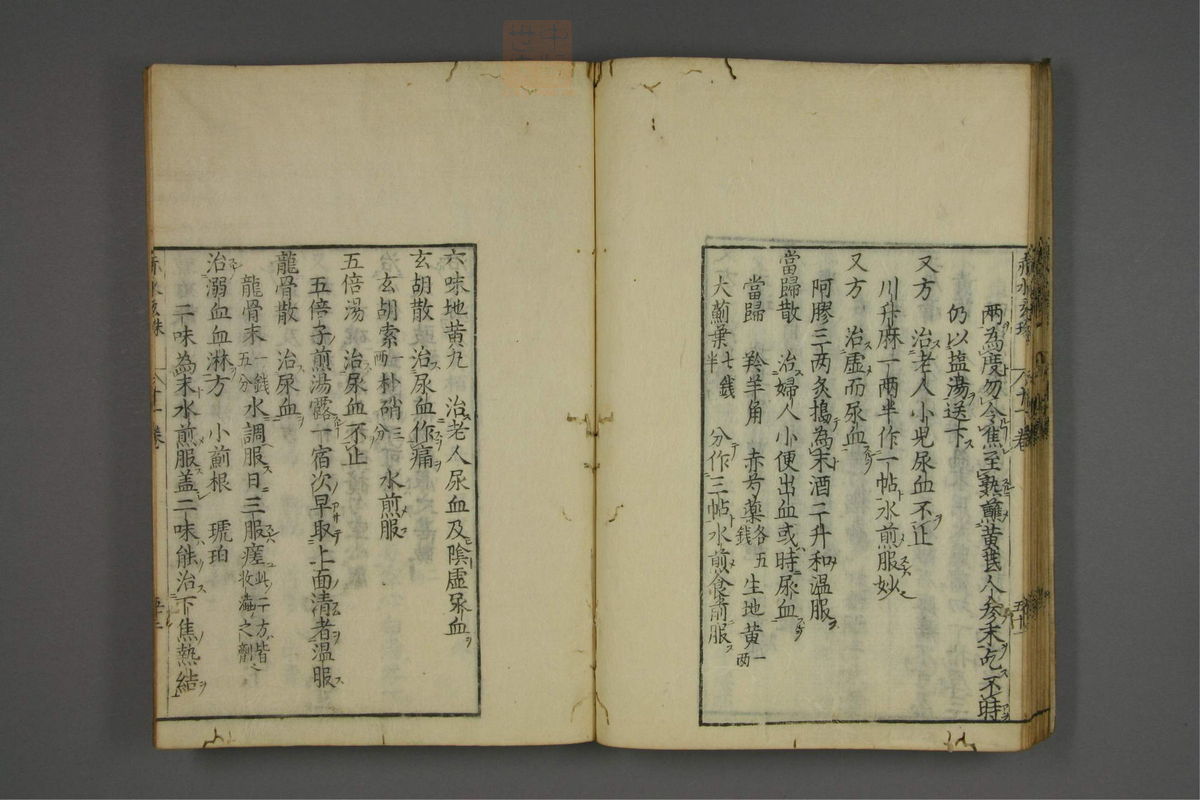 赤水玄珠 八十一卷 五十一
両為度勿令焦至熟蘸黄芪人参末吃不時
仍以塩湯送下
又方 治老人小児尿血不止
川升麻一両半作一帖水煎服妙
又方 治虚而尿血
阿膠三两炙搗為末酒二升和温服
當歸散 治婦人小便出血或時尿血
當歸 羚羊角 赤芍薬各五錢 生地黄一两
大薊葉七錢半 分作三帖水煎食前服
六味地黄丸 治老人尿血及陰虚尿血
玄胡散 治尿血作痛
玄胡索一两 朴硝三分 水煎服
五倍湯 治尿血不止
五倍子煎湯露一宿次早取上面清者温服
龍骨散 治尿血
龍骨末一錢五分水調服日三服瘥此二方皆收濇之劑
治溺血血淋方 小薊根 琥珀
二味為末水煎服盖二味能治下焦熱結
赤水玄珠